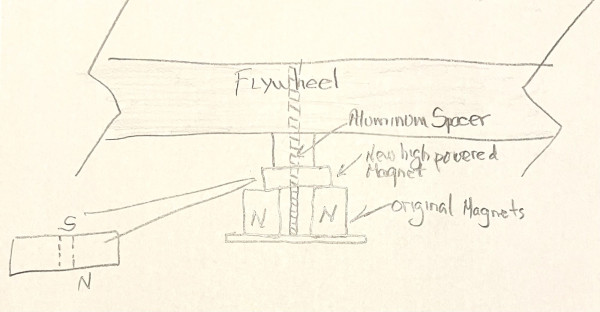 Flywheel
Aluminum Spacer
New high powered
Magnet
original Magnets
N
N
S
N